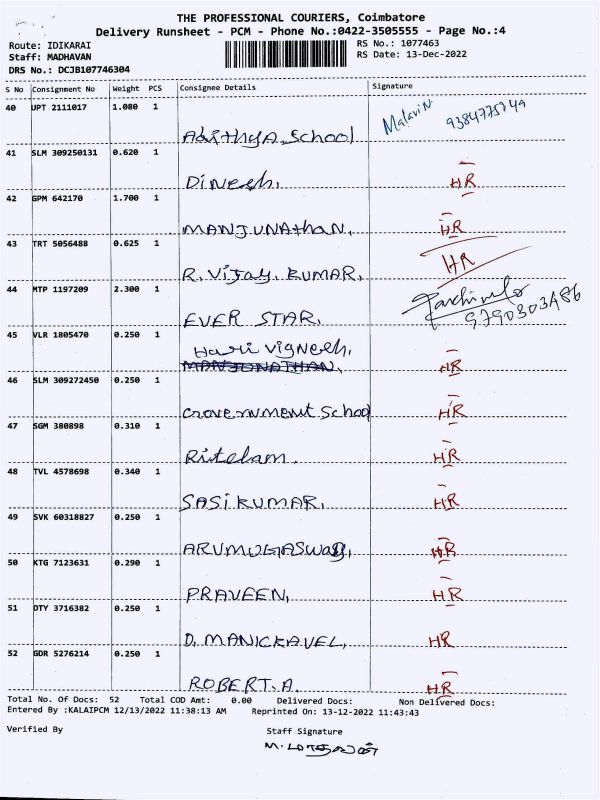 THE PROFESSIONAL COURIERS, Coimbatore
Delivery Runsheet - PCM - Phone No.:0422-3505555 - Page No.:4
Route: IDIKARAI RS No.: 1077463
Staff: MADHAVAN RS Date: 13-Dec-2022
DRS No.: DCJB107746304
S No Consignment No Weight PCS Consignee Details Signature
40 UPT 2111017 1.080 1 Malavin 9384775749
Adithya School
41 SLM 309250131 0.620 1
Dinesh. HR
42 GPM 642170 1.700 1
MANJUNAthan. HR
43 TRT 5056488 0.625 1
R. Vijay. KUMAR. HR
44 MTP 1197209 2.300 1
EVER STAR. 9790303486
45 VLR 1805470 0.250 1
Hari Vignesh.
MANJUNATHAN. HR
46 SLM 309272450 0.250 1
Government School HR
47 SGM 380898 0.310 1
HR
48 TVL 4578698 0.340 1
SASIKUMAR. HR
49 SVK 60318827 0.250 1
HR
50 KTG 7123631 0.290 1
PRAVEEN. HR
51 OTY 3716382 0.250 1
D. MANICKAVEL. HR
52 GDR 5276214 0.250 1
ROBERT. A. HR
Total No. Of Docs: 52 Total COD Amt: 0.00 Delivered Docs: Non Delivered Docs:
Entered By :KALAIPCM 12/13/2022 11:38:13 AM Reprinted On: 13-12-2022 11:43:43
Verified By Staff Signature